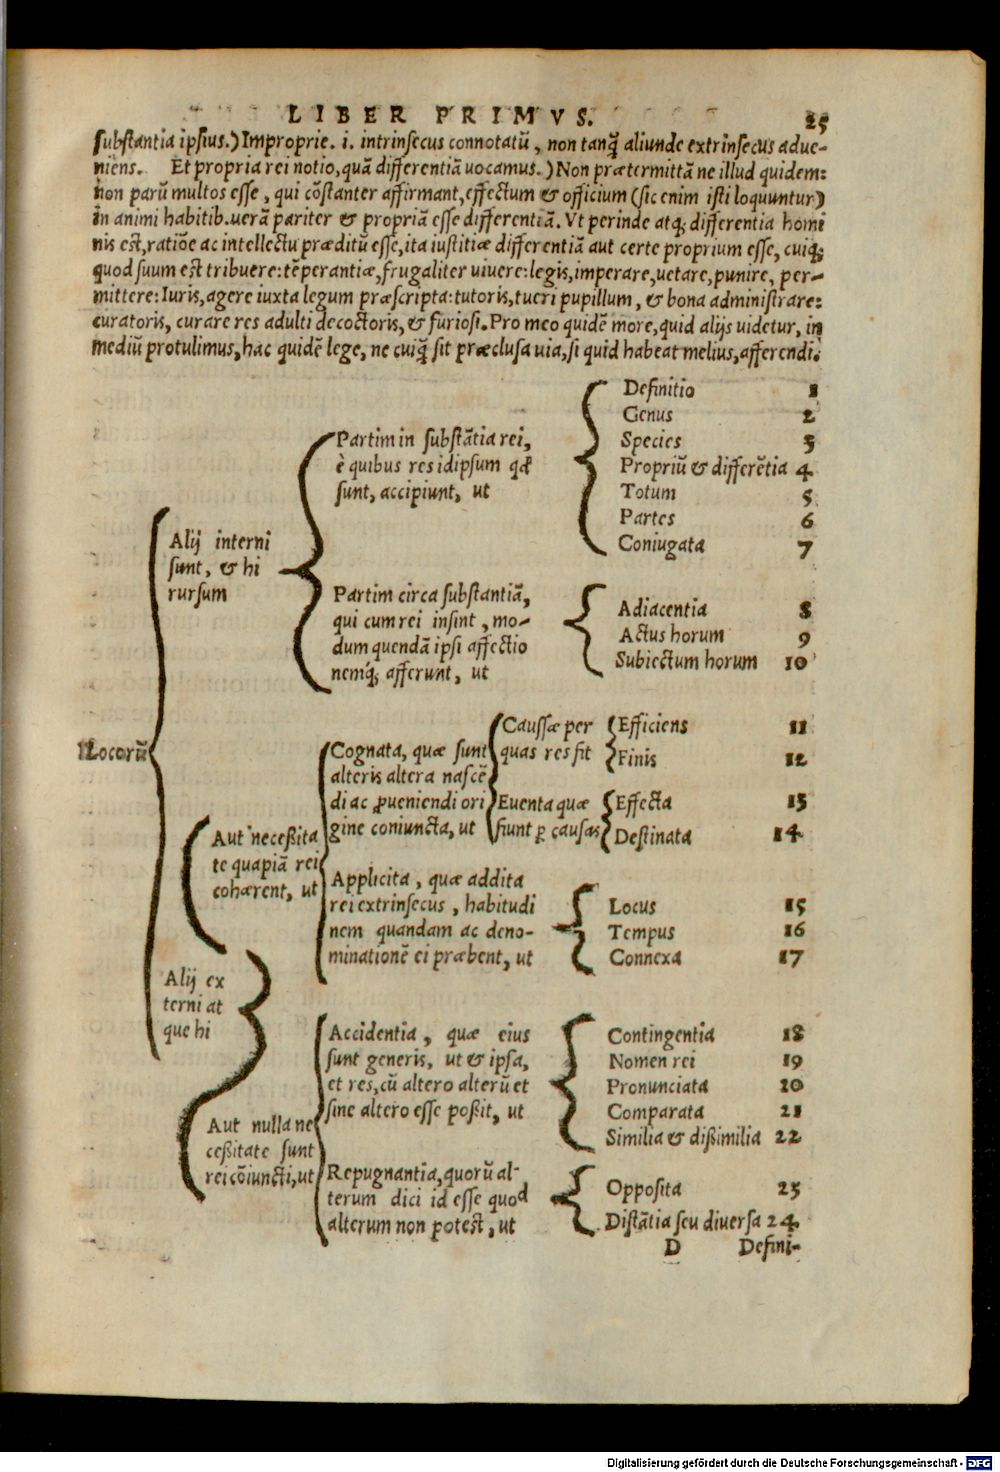 LIBER PRIMVS. 25
substantia ipsius.) Improprie. i. intrinsecus connotatū, non tanq̃ aliunde extrinsecus adue-
niens. Et propria rei notio, quā differentiā uocamus.) Non prætermittā ne illud quidem:
non parū multos esse, qui cōstanter affirmant, effectum & officium (sic enim isti loquuntur)
in animi habitib. uerā pariter & propriā esse differentiā. Vt perinde atq; differentia homi
nis est, ratiōe ac intellectu præditū esse, ita iustitiæ differentiā aut certe proprium esse, cuiq;
quod suum est tribuere: tēperantiæ, frugaliter uiuere: legis, imperare, uetare, punire, per-
mittere: Iuris, agere iuxta legum præscripta: tutoris, tueri pupillum, & bona administrare:
curatoris, curare res adulti decoctoris, & furiosi. Pro meo quidē more, quid alijs uidetur, in
mediū protulimus, hac quidē lege, ne cuiq̃ sit præclusa uia, si quid habeat melius, afferendi.
Locorū
Alij interni
sunt, & hi
rursum
Partim in substātia rei,
è quibus res idipsum qđ
sunt, accipiunt, ut
Definitio 1
Genus 2
Species 3
Propriū & differētia 4
Totum 5
Partes 6
Coniugata 7
Partim circa substantiā,
qui cum rei insint, mo-
dum quendā ipsi affectio
nemq́; afferunt, ut
Adiacentia 8
Actus horum 9
Subiectum horum 10
Alij ex
terni at
que hi
Aut neceßita
te quapiā rei
cohærent, ut
Cognata, quæ sunt
alteris altera nascē
di ac ꝓueniendi ori
gine coniuncta, ut
Caussæ per
quas res fit
Efficiens 11
Finis 12
Euenta quæ
fiunt ꝑ causas
Effecta 13
Destinata 14
Applicita, quæ addita
rei extrinsecus, habitudi
nem quandam ac deno-
minationē ei præbent, ut
Locus 15
Tempus 16
Connexa 17
Aut nulla ne
ceßitate sunt
rei cōiuncti, ut
Accidentia, quæ eius
sunt generis, ut & ipsa,
et res, cū altero alterū et
sine altero esse poßit, ut
Contingentia 18
Nomen rei 19
Pronunciata 20
Comparata 21
Similia & dißimilia 22
Repugnantia, quorū al-
terum dici id esse quod
alterum non potest, ut
Opposita 23
Distātia seu diuersa 24
D Defini-
Digitalisierung gefördert durch die Deutsche Forschungsgemeinschaft - DFG